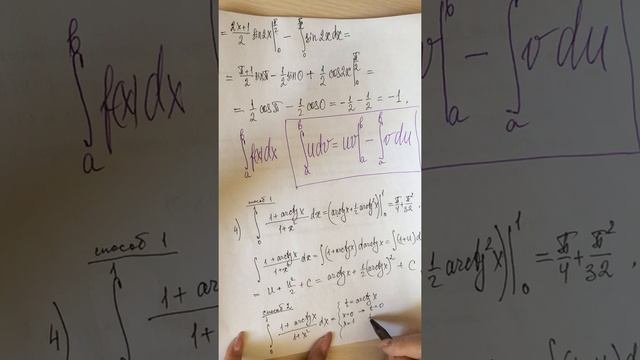 = \frac{2x+1}{2} sin2x|_0^{\frac{π}{2}} - ∫_0^{\frac{π}{2}} sin2x dx =
= \frac{π+1}{2} sinπ - \frac{1}{2} sin0 + \frac{1}{2} cos2x|_0^{\frac{π}{2}} =
= \frac{1}{2} cosπ - \frac{1}{2} cos0 = -\frac{1}{2} - \frac{1}{2} = -1.
∫_a^b f(x)dx ∫_a^b u dv = uv|_a^b - ∫_a^b v du
способ 1
4) ∫_0^1 \frac{1+arctgx}{1+x^2} dx = (arctgx + \frac{1}{2} arctg^2x)|_0^1 = \frac{π}{4} + \frac{π^2}{32}.
∫ \frac{1+arctgx}{1+x^2} dx = ∫(1+arctgx) d arctgx = ∫(1+u)d
= u + \frac{u^2}{2} + C = arctgx + \frac{1}{2}(arctgx)^2 + C.
способ 2
∫_0^1 \frac{1+arctgx}{1+x^2} dx = { t = arctgx
x=0 → t=0
x=1